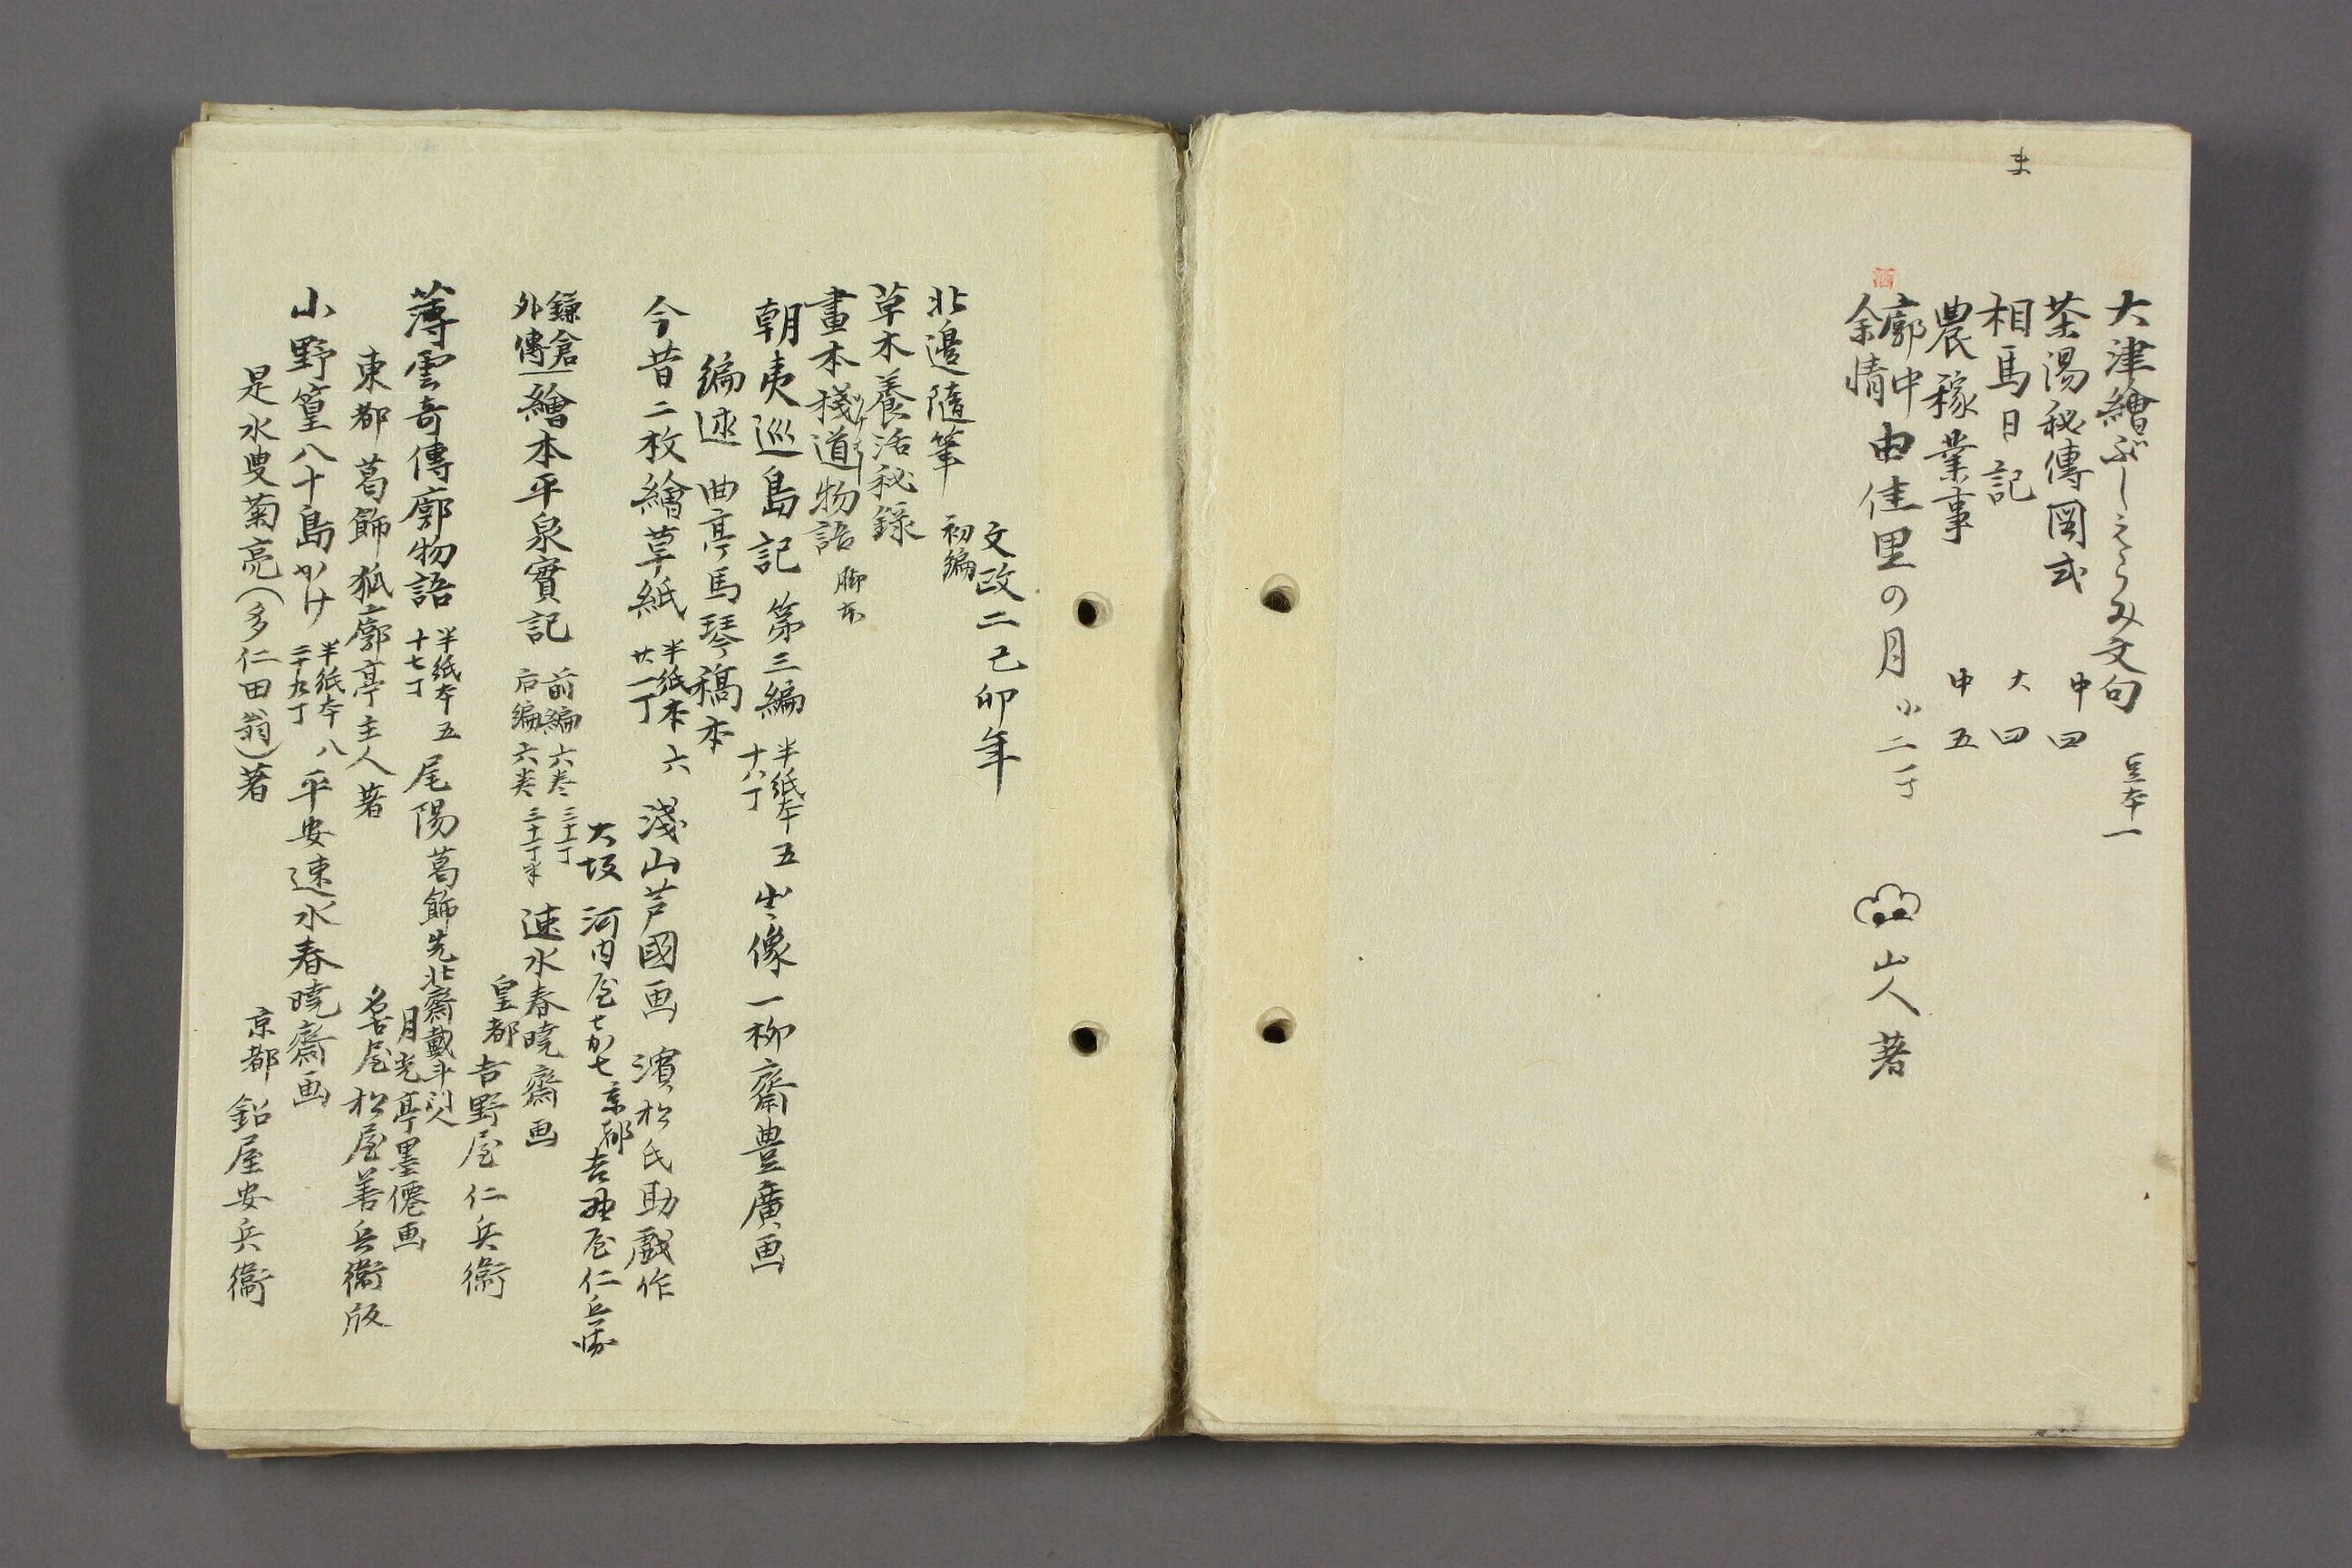 ま
大津繪ぶしえらみ文句 豆本一
茶湯秘傳図式 中四
相馬日記 大四
農稼業事 中五
酒
廓中
余情 由佳里の月 小二丁
山人著
文政二己卯年
北邊隨筆 初編
草木養活秘録
畫本棧道物語 脚本
朝夷巡島記 第三編 半紙本五 十八丁 出像 一柳齋豊廣画
編述 曲亭馬琴稿本
今昔二枚繪草紙 半紙本六 廿一丁 淺山芦國画 濱松氏助戯作
大坂 河内屋七か七 京都 吉野屋仁兵衛
鎌倉
外傳 繪本平泉實記 前編六巻 三十一丁 后編六巻 三十一丁半 速水春暁齋画
皇都 吉野屋仁兵衛
薄雲奇傳廓物語 半紙本五 十七丁 尾陽 葛飾先北齋戴斗門人 月光亭墨僊画
東都 葛飾狐廓亭主人著 名古屋 松屋善兵衛版
小野篁八十島かけ 半紙本八 二十九丁 平安速水春暁齋画
是水叟菊亮(多仁田翁)著 京都 鉛屋安兵衛